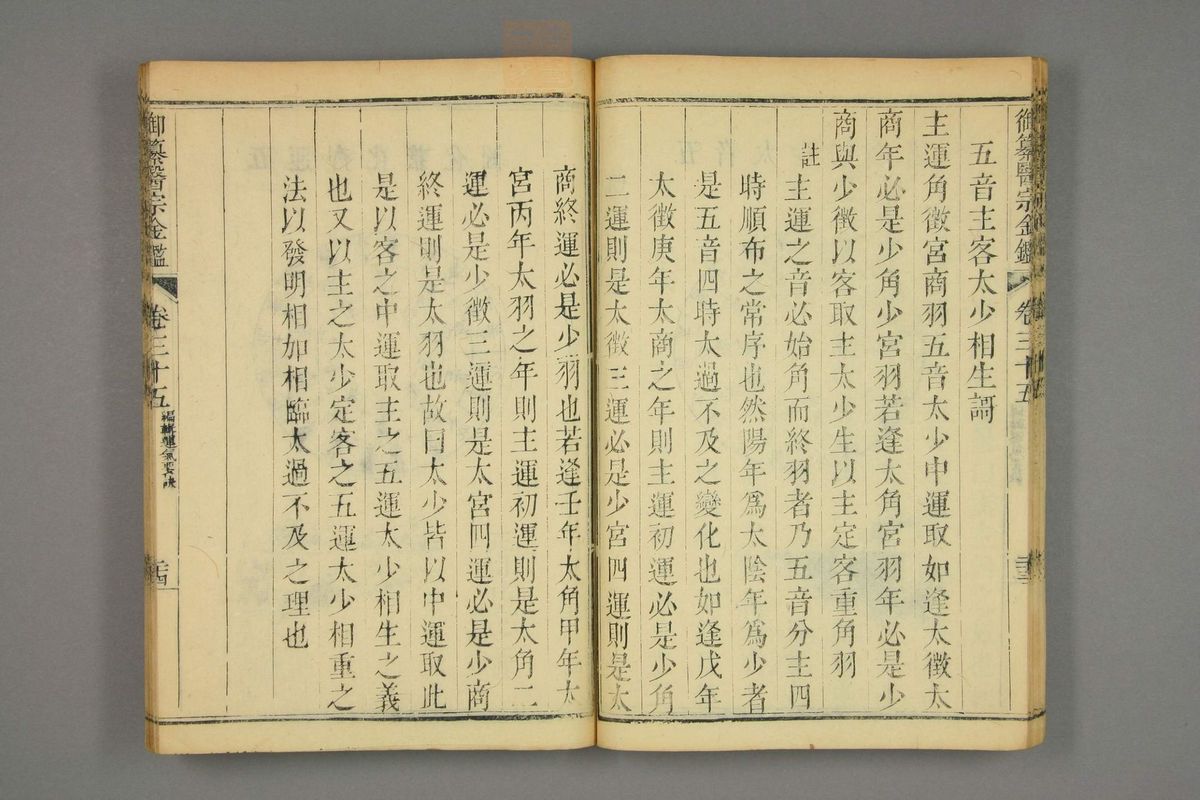 御纂醫宗金鑑
卷三十五
五音主客太少相生謌
主運角徵宮商羽五音太少中運取如逢太徵太
商年必是少角少宮羽若逢太角宮羽年必是少
商與少徵以客取主太少生以主定客重角羽
註主運之音必始角而終羽者乃五音分主四
時順布之常序也然陽年爲太陰年爲少者
是五音四時太過不及之變化也如逢戊年
太徵庚年太商之年則主運初運必是少角
二運則是太徵三運必是少宮四運則是太
商終運必是少羽也若逢壬年太角甲年太
宮丙年太羽之年則主運初運則是太角二
運必是少徵三運則是太宮四運必是少商
終運則是太羽也故曰太少皆以中運取此
是以客之中運取主之五運太少相生之義
也又以主之太少定客之五運太少相重之
法以發明相加相臨太過不及之理也
御纂醫宗金鑑
卷三十五
編輯運氣要訣
二十四